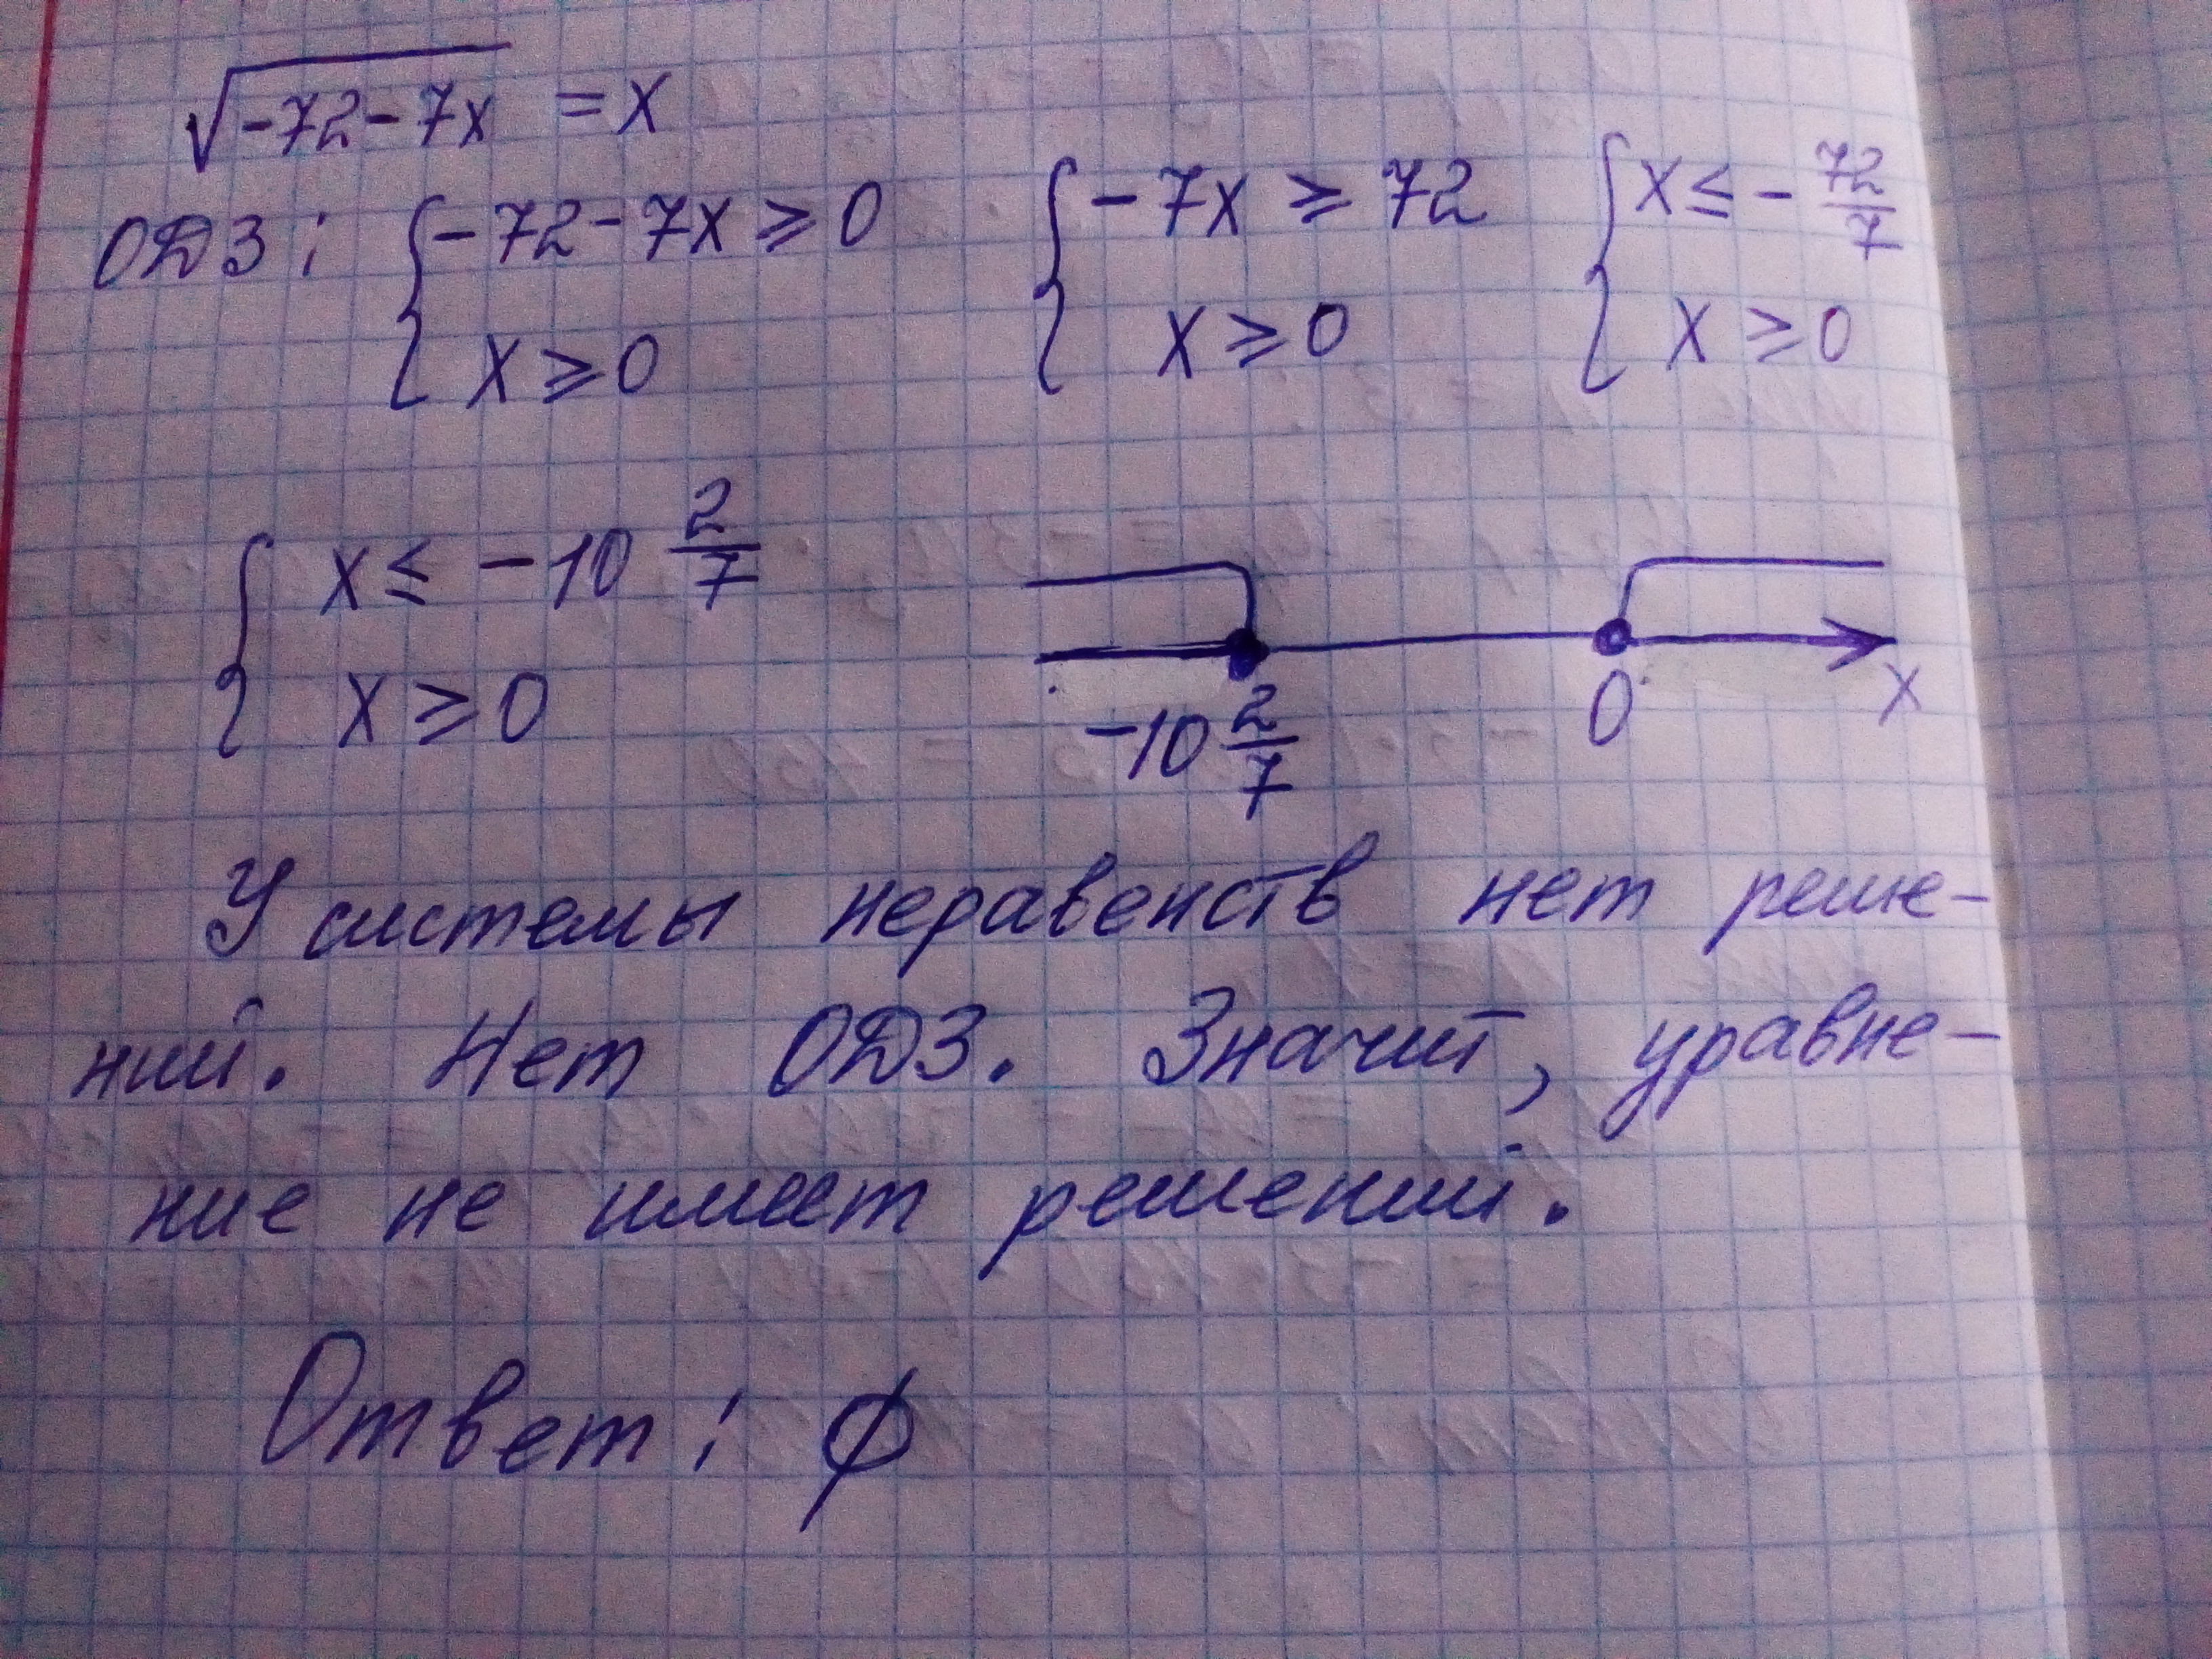 √-72-7x = x
ОДЗ: { -72-7x ≥ 0 { -7x ≥ 72 { x ≤ - 72/7
x ≥ 0 x ≥ 0 x ≥ 0
{ x ≤ -10 2/7
x ≥ 0
-10 2/7 0 x
У системы неравенств нет реше-
ний. Нет ОДЗ. Значит, уравне-
ние не имеет решений.
Ответ: ∅